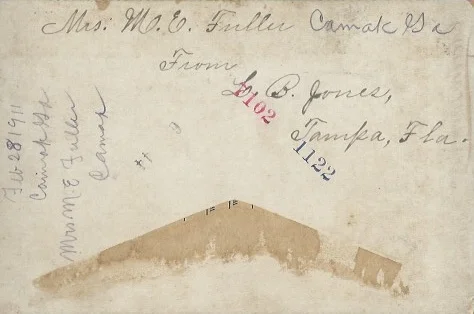 Mrs. M. E. Fuller Camak Ga
From
L. B. Jones,
Tampa, Fla.
1102
1122
Feb 28 1911
Camak Ga
Mrs M E Fuller
Camak